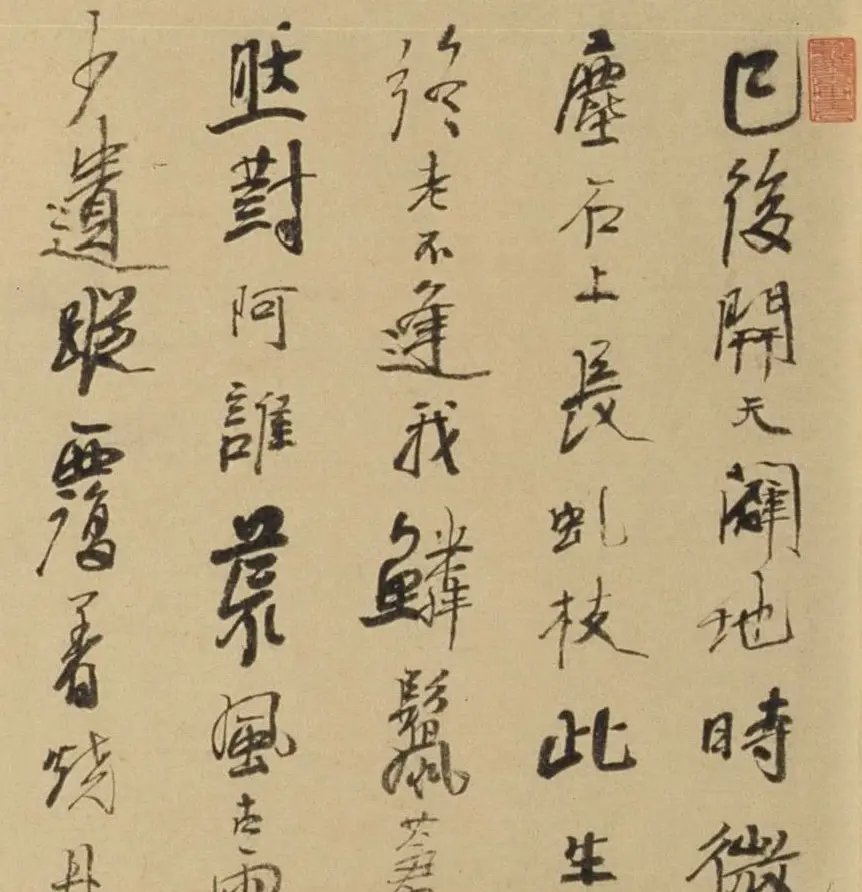 已後開天闢地時微
塵石上長虬枝此生
終老不逢我鱗鬣蒼
然對阿誰荒風古雨
少遺蹤覆着燒丹